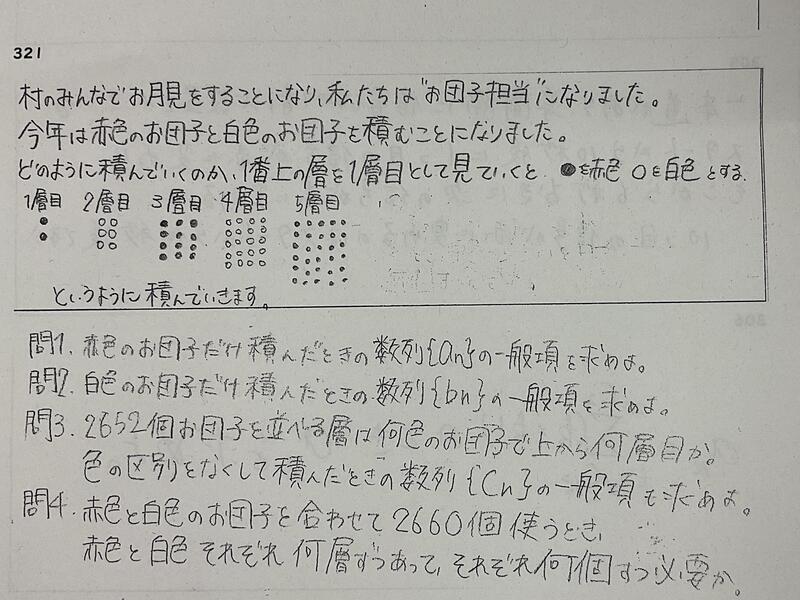 321
村のみんなでお月見をすることになり、私たちは"お団子担当"になりました。
今年は赤色のお団子と白色のお団子を積むことになりました。
どのように積んでいくのか、1番上の層を1層目として見ていくと ●を赤色 ○を白色 とする.
1層目 2層目 3層目 4層目 5層目 …
というように積んでいきます。
問1. 赤色のお団子だけ積んだときの数列{an}の一般項を求めよ。
問2. 白色のお団子だけ積んだときの数列{bn}の一般項を求めよ。
問3. 2652個お団子を並べる層は何色のお団子で上から何層目か。
色の区別をなくして積んだときの数列{Cn}の一般項も求めよ。
問4. 赤色と白色のお団子を合わせて2660個使うとき、
赤色と白色それぞれ何層ずつあって、それぞれ何個ずつ必要か。